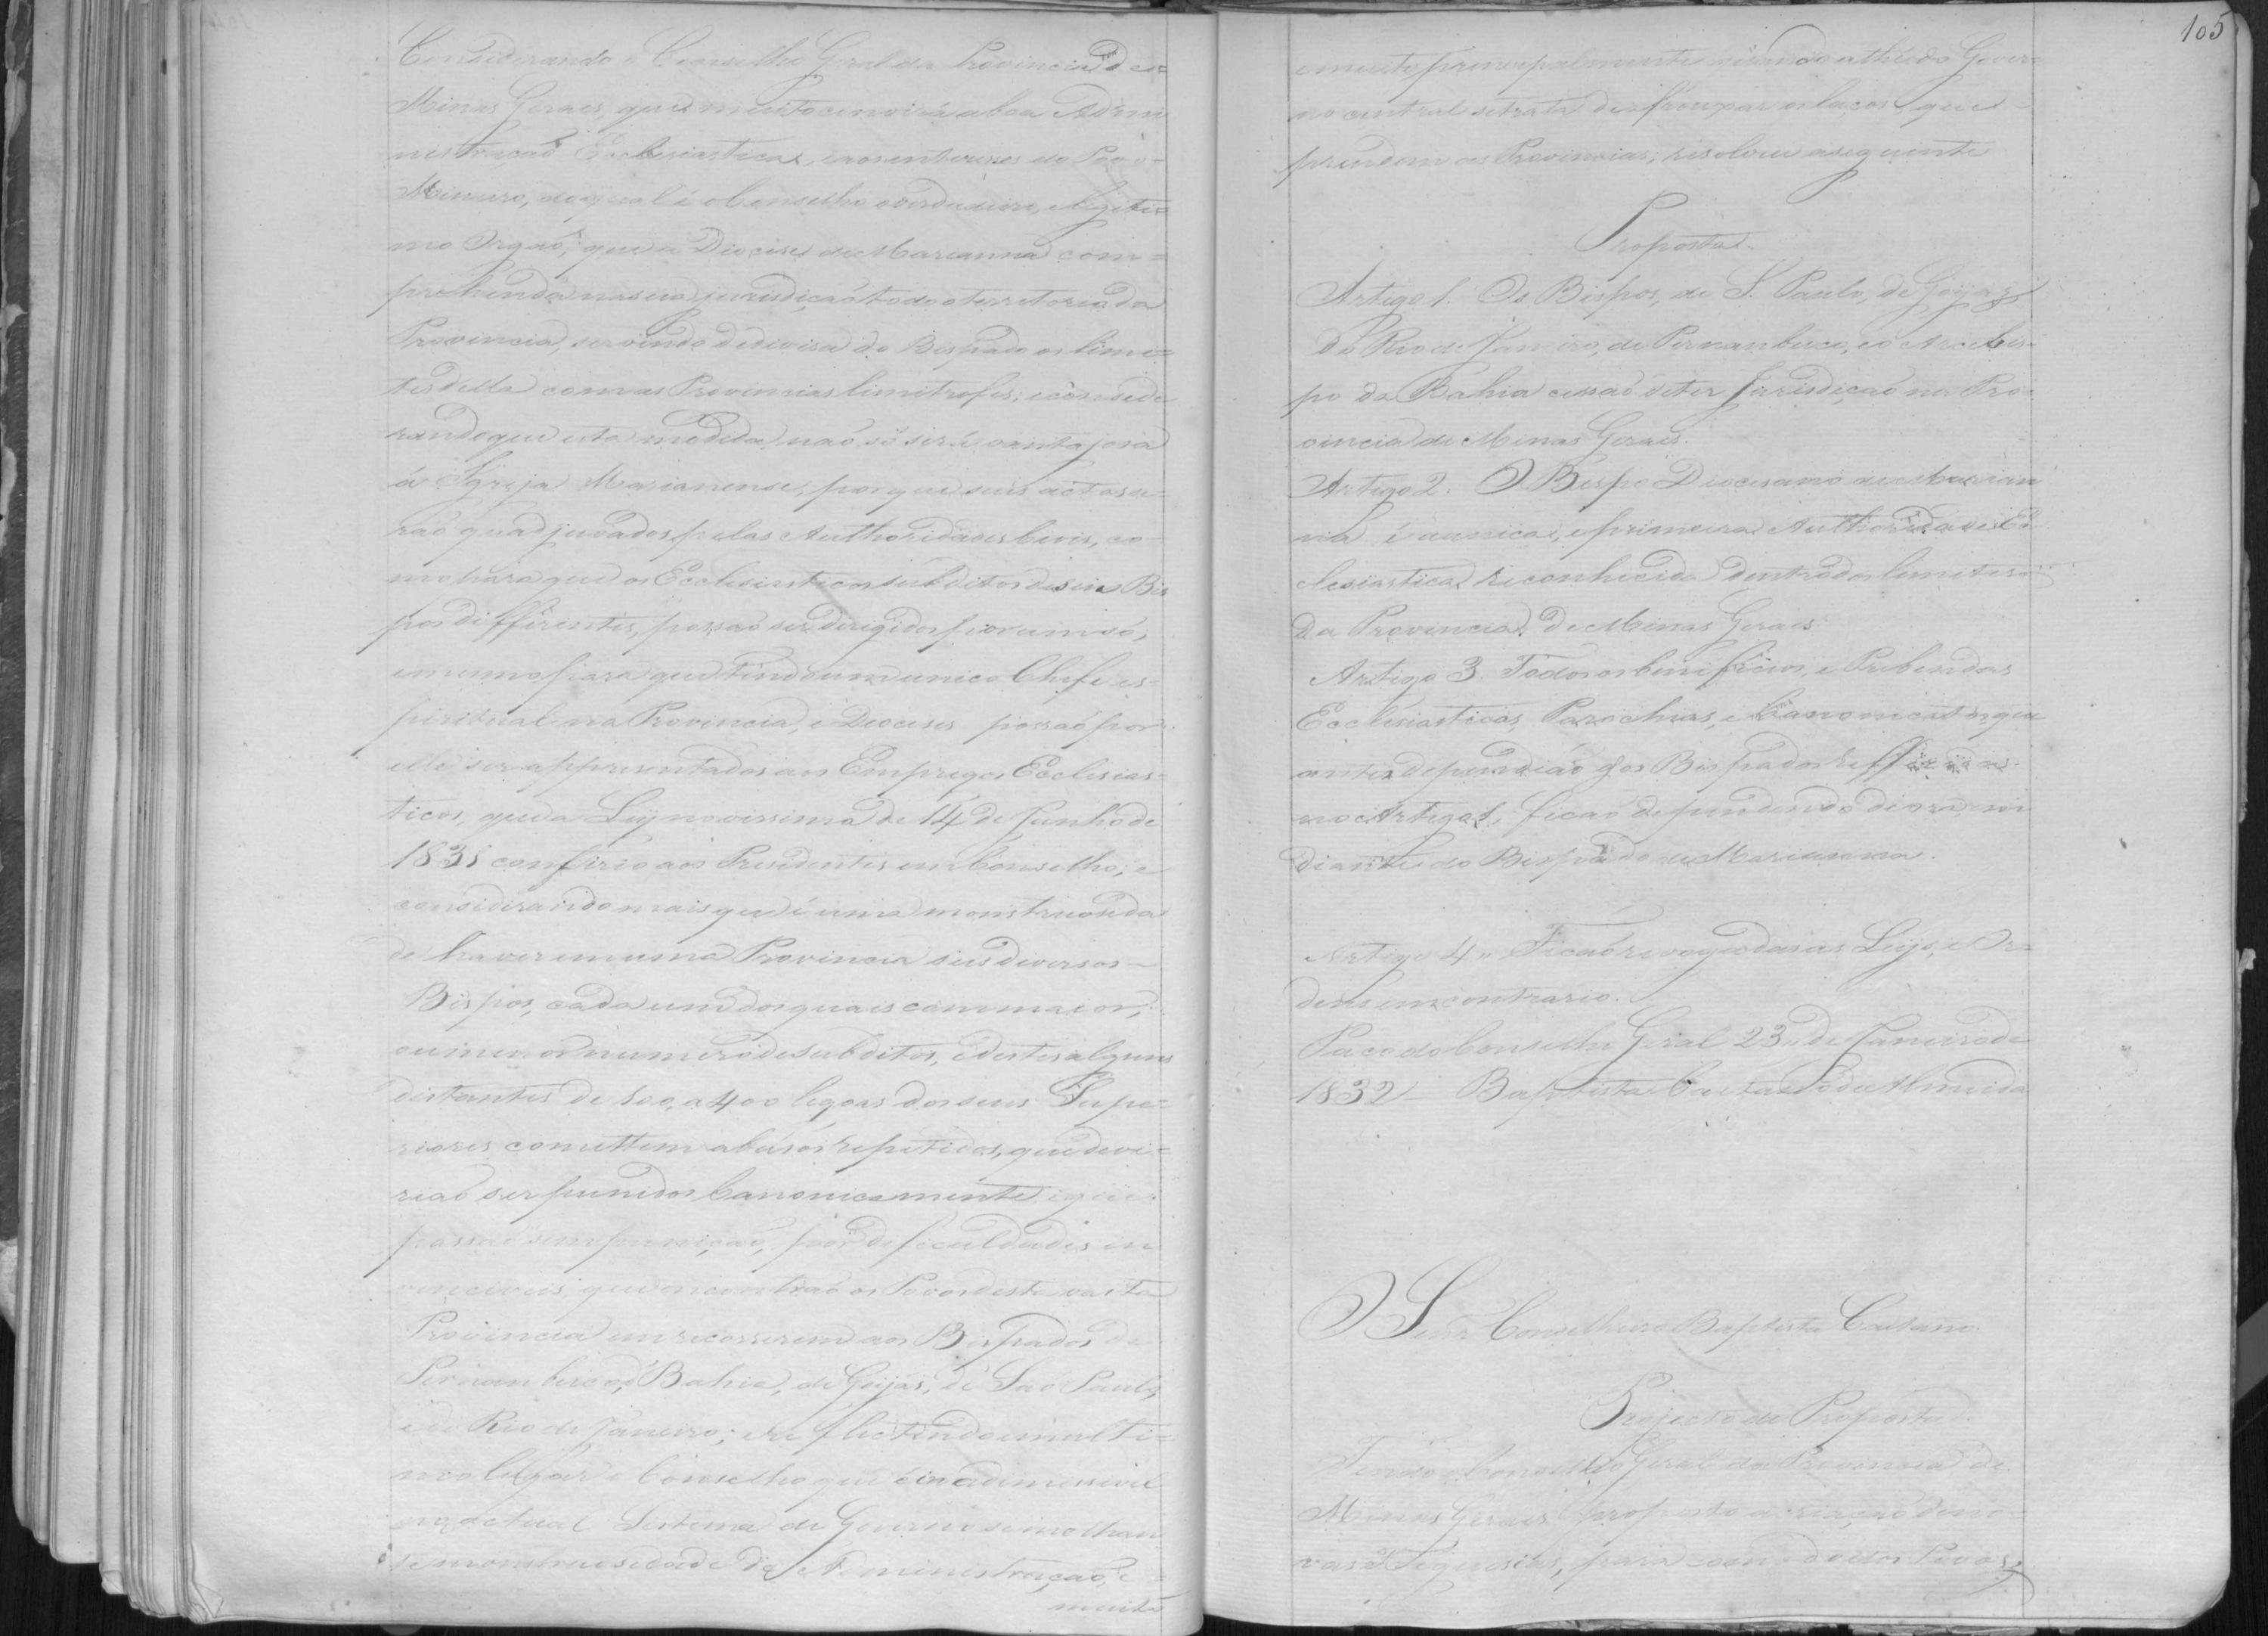 Considerando o Conselho Geral da Provincia de=
Minas Geraes, que muito convirá a boa Admi
nistração Ecclesiastica, e aos enteresses do Povo=
Mineiro, do qual é o Conselho o verdadeiro, e legiti=
mo Orgaõ, que a Diocese de Marianna com=
prehenda na sua jurisdiçaõ todo o territorio da
Provincia, servindo de divisa do Bispado os limi=
tes della com as Provincias limitrofes; e conside
rando que esta medida naõ só será vantajosa
á Igreja Marianense, porque seus actos se=
raõ quadjuvados pelas Authoridades Civis, co=
mo para que os Ecclesiasticos subditos de seis Bis
pos differentes, possaõ ser dirigidos por um só,
e mesmo para que tendo um unico Chefe es=
piritual na Provincia, e Dioceses possaõ por
elle ser appresentados aos Empregos Ecclesias=
ticos, que a Ley novissima de 14 de Junho de
1831 conferio aos Presidentes em Conselho; e
considerando mais que é uma monstruosida
de haver em uma Provincia seis diversos
Bispos, cada um dos quais com maior,
ou menor numero de subditos, e destes alguns
distantes de 300, a 400 legoas dos seus Supe=
riores comettem abusos repetidos, que deve=
riaõ ser punidos Canonicamente, e que
passaõ sem puniçaõ, por deficuldades in
venciveis, que encontraõ os Povos desta vasta
Provincia em recorrerem aos Bispados de
Pernambuco, Bahia, de Goijás, de Saõ Paulo,
e do Rio de Janeiro; e reflectindo em ulti=
mo lugar o Conselho que é inadimissivel
no actual Sistema de Governo semelhan
te monstruosidade de Administraçaõ, e=
muito
105
e muito principalmente quando athé do Gover=
no central se trata de frouxar os laços que
prendem as Provincias, resolveu a seguinte
Proposta.
Artigo 1. Os Bispos, de S. Paulo, de Goijaz
do Rio de Janeiro, de Pernanbuco, e o Arcebis-
po da Bahia cessaõ de ter Jurisdiçaõ na Pro-
vincia de Minas Geraes.
Artigo 2. O Bispo Diocesano de Marian
na é a unica, e primeira Authoridade Ec
clesiastica reconhecida dentro dos limites
da Provincia de Minas Geraes.
Artigo 3 Todos os beneficios, e Prebendas
Ecclesiasticas, Parochias, e Canonicatos que
antes dependiaõ dos Bispados refferidos
no Artigo 1, ficaõ dependendo de ora em
diante do Bispado de Marianna.
Artigo 4 " Ficaõ revogadas as Leys, e Or=
dens em contrario.
Paço do Conselho Geral 23 de Janeiro de
1832 Baptista Caetano de Almeida
O Senr Conselheiro Baptista Caetano
Projecto de Proposta.
Tendo o Conselho Geral da Provincia de
Minas Geraes proposto a criaçaõ de no-
vas Freguesias, para commodo dos Povos,